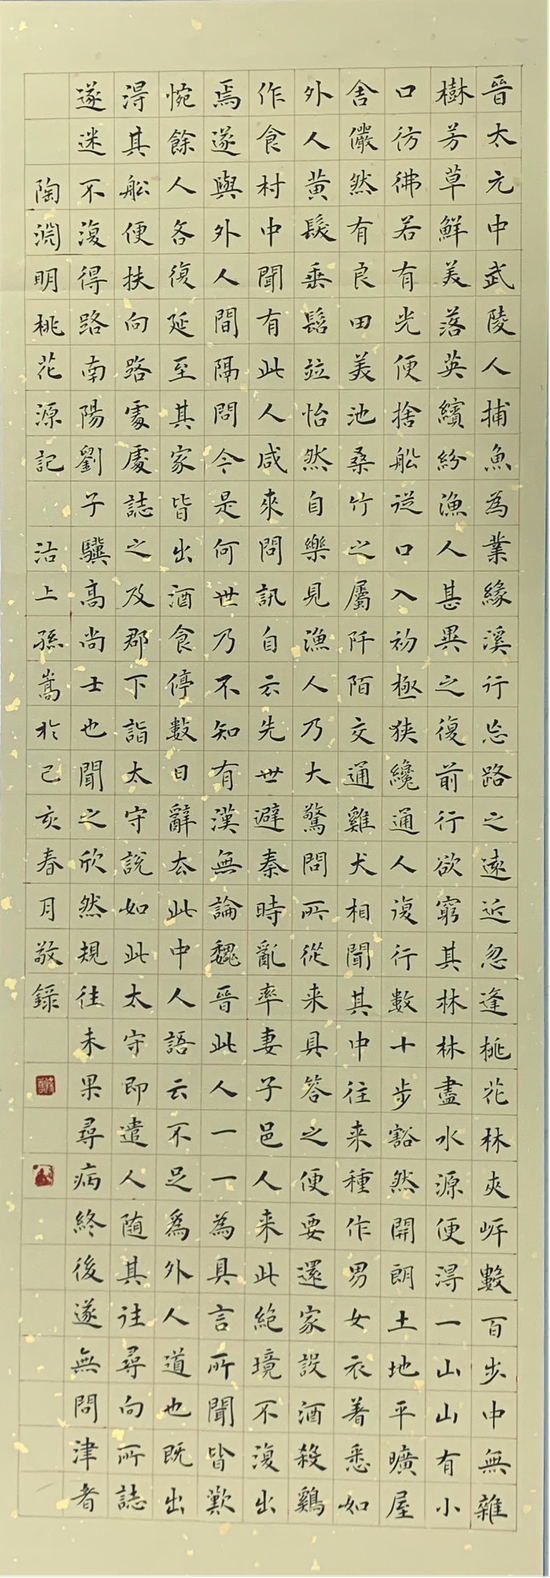 晉太元中武陵人捕魚為業緣溪行忘路之遠近忽逢桃花林夾岸數百步中無雜
樹芳草鮮美落英繽紛漁人甚異之復前行欲窮其林林盡水源便得一山山有小
口彷彿若有光便捨船從口入初極狹纔通人復行數十步豁然開朗土地平曠屋
舍儼然有良田美池桑竹之屬阡陌交通雞犬相聞其中往来種作男女衣著悉如
外人黃髮垂髫竝怡然自樂見漁人乃大驚問所從来具答之便要還家設酒殺鷄
作食村中聞有此人咸來問訊自云先世避秦時亂率妻子邑人来此絕境不復出
焉遂與外人間隔問今是何世乃不知有漢無論魏晉此人一一為具言所聞皆歎
惋餘人各復延至其家皆出酒食停數日辭去此中人語云不足為外人道也既出
得其船便扶向路處處誌之及郡下詣太守說如此太守即遣人随其往尋向所誌
遂迷不復得路南陽劉子驥高尚士也聞之欣然規往未果尋病終後遂無問津者
陶淵明桃花源記 沽上孫嵩於己亥春月敬錄